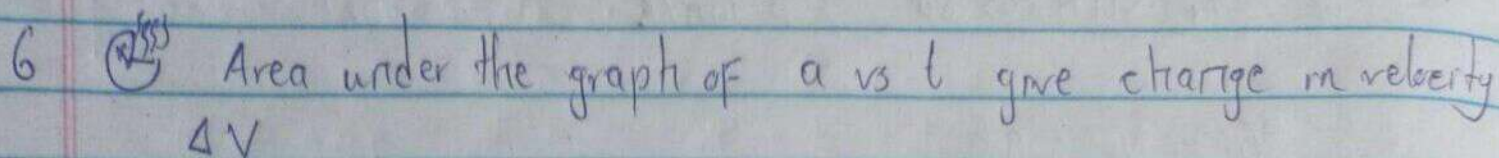 6 Area under the graph of a vs t give change in velocity
ΔV